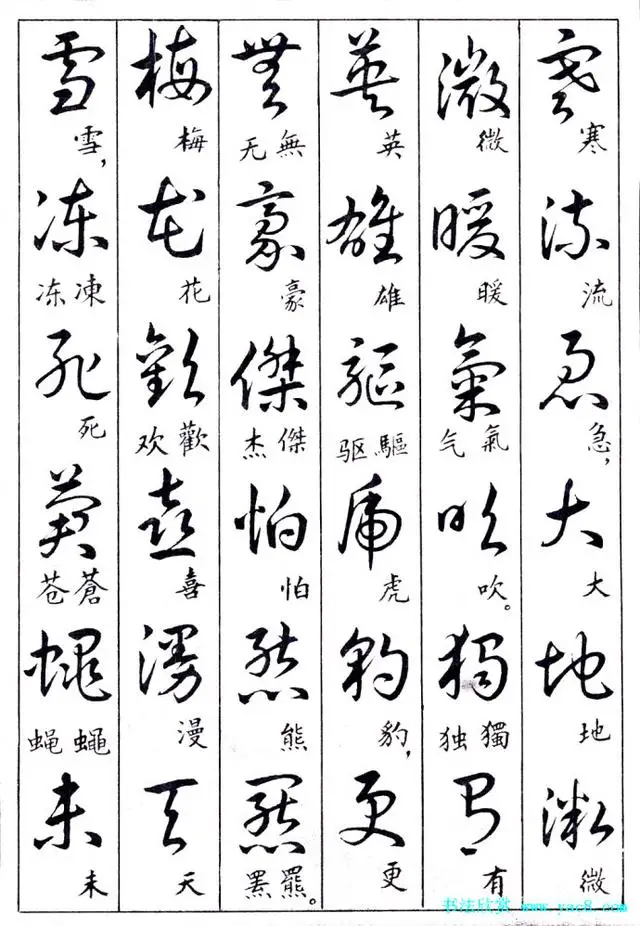 寒流急大地微
寒流急，大地微
微暖氣吹獨有
微暖氣气吹。獨独有
英雄驅虎豹更
英雄驅驱虎豹，更
無豪傑怕熊羆
無无豪傑杰怕熊羆。罴
梅花歡喜漫天
梅花歡欢喜漫天
雪凍死蒼蠅未
雪，凍冻死蒼苍蠅蝇未
书法欣赏 www.yac8.com